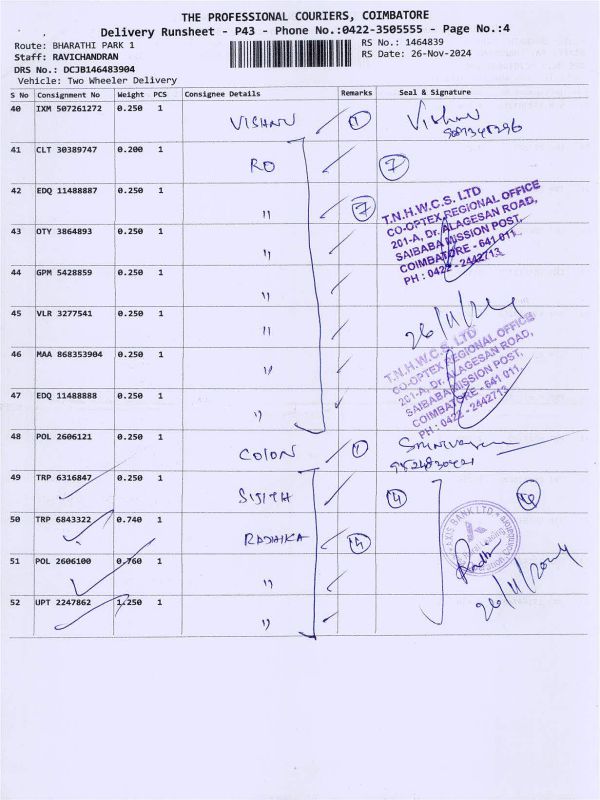 THE PROFESSIONAL COURIERS, COIMBATORE
Delivery Runsheet - P43 - Phone No.:0422-3505555 - Page No.:4
Route: BHARATHI PARK 1
RS No.: 1464839
Staff: RAVICHANDRAN
RS Date: 26-Nov-2024
DRS No.: DCJB146483904
Vehicle: Two Wheeler Delivery
S No Consignment No Weight PCS Consignee Details Remarks Seal & Signature
40 IXM 507261272 0.250 1 VISHNU 1 Vishnu
41 CLT 30389747 0.200 1 RO 7
42 EDQ 11488887 0.250 1 " 7
T.N.H.W.C.S. LTD
CO-OPTEX REGIONAL OFFICE
201-A, Dr. ALAGESAN ROAD,
SAIBABA MISSION POST,
COIMBATORE - 641 011.
PH : 0422 - 2442713
43 OTY 3864893 0.250 1 "
44 GPM 5428859 0.250 1 "
45 VLR 3277541 0.250 1 " 26/11/24
46 MAA 868353904 0.250 1 "
T.N.H.W.C.S. LTD
CO-OPTEX REGIONAL OFFICE
201-A, Dr. ALAGESAN ROAD,
SAIBABA MISSION POST,
COIMBATORE - 641 011.
PH : 0422 - 2442713
47 EDQ 11488888 0.250 1 "
48 POL 2606121 0.250 1 COLON 1
49 TRP 6316847 0.250 1 SIJITH 4
50 TRP 6843322 0.740 1 RADHIKA 4
AXIS BANK LTD.
Radhi
51 POL 2606100 0.760 1 "
26/11/2024
52 UPT 2247862 1.250 1 "